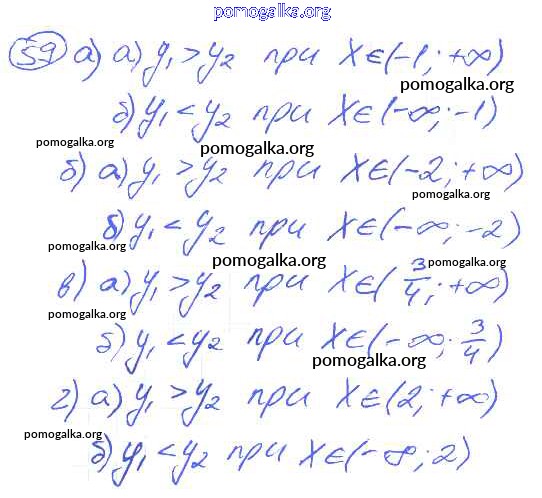 pomogalka.org
59 а) а) y₁ > y₂ при X∈(-1; +∞)
pomogalka.org
б) y₁ < y₂ при X∈(-∞; -1)
pomogalka.org
pomogalka.org
б) а) y₁ > y₂ при X∈(-2; +∞)
pomogalka.org
б) y₁ < y₂ при X∈(-∞; -2)
pomogalka.org
pomogalka.org
pomogalka.org
в) а) y₁ > y₂ при X∈(3/4; +∞)
pomogalka.org
б) y₁ < y₂ при X∈(-∞; 3/4)
pomogalka.org
pomogalka.org
г) а) y₁ > y₂ при X∈(2; +∞)
pomogalka.org
б) y₁ < y₂ при X∈(-∞; 2)